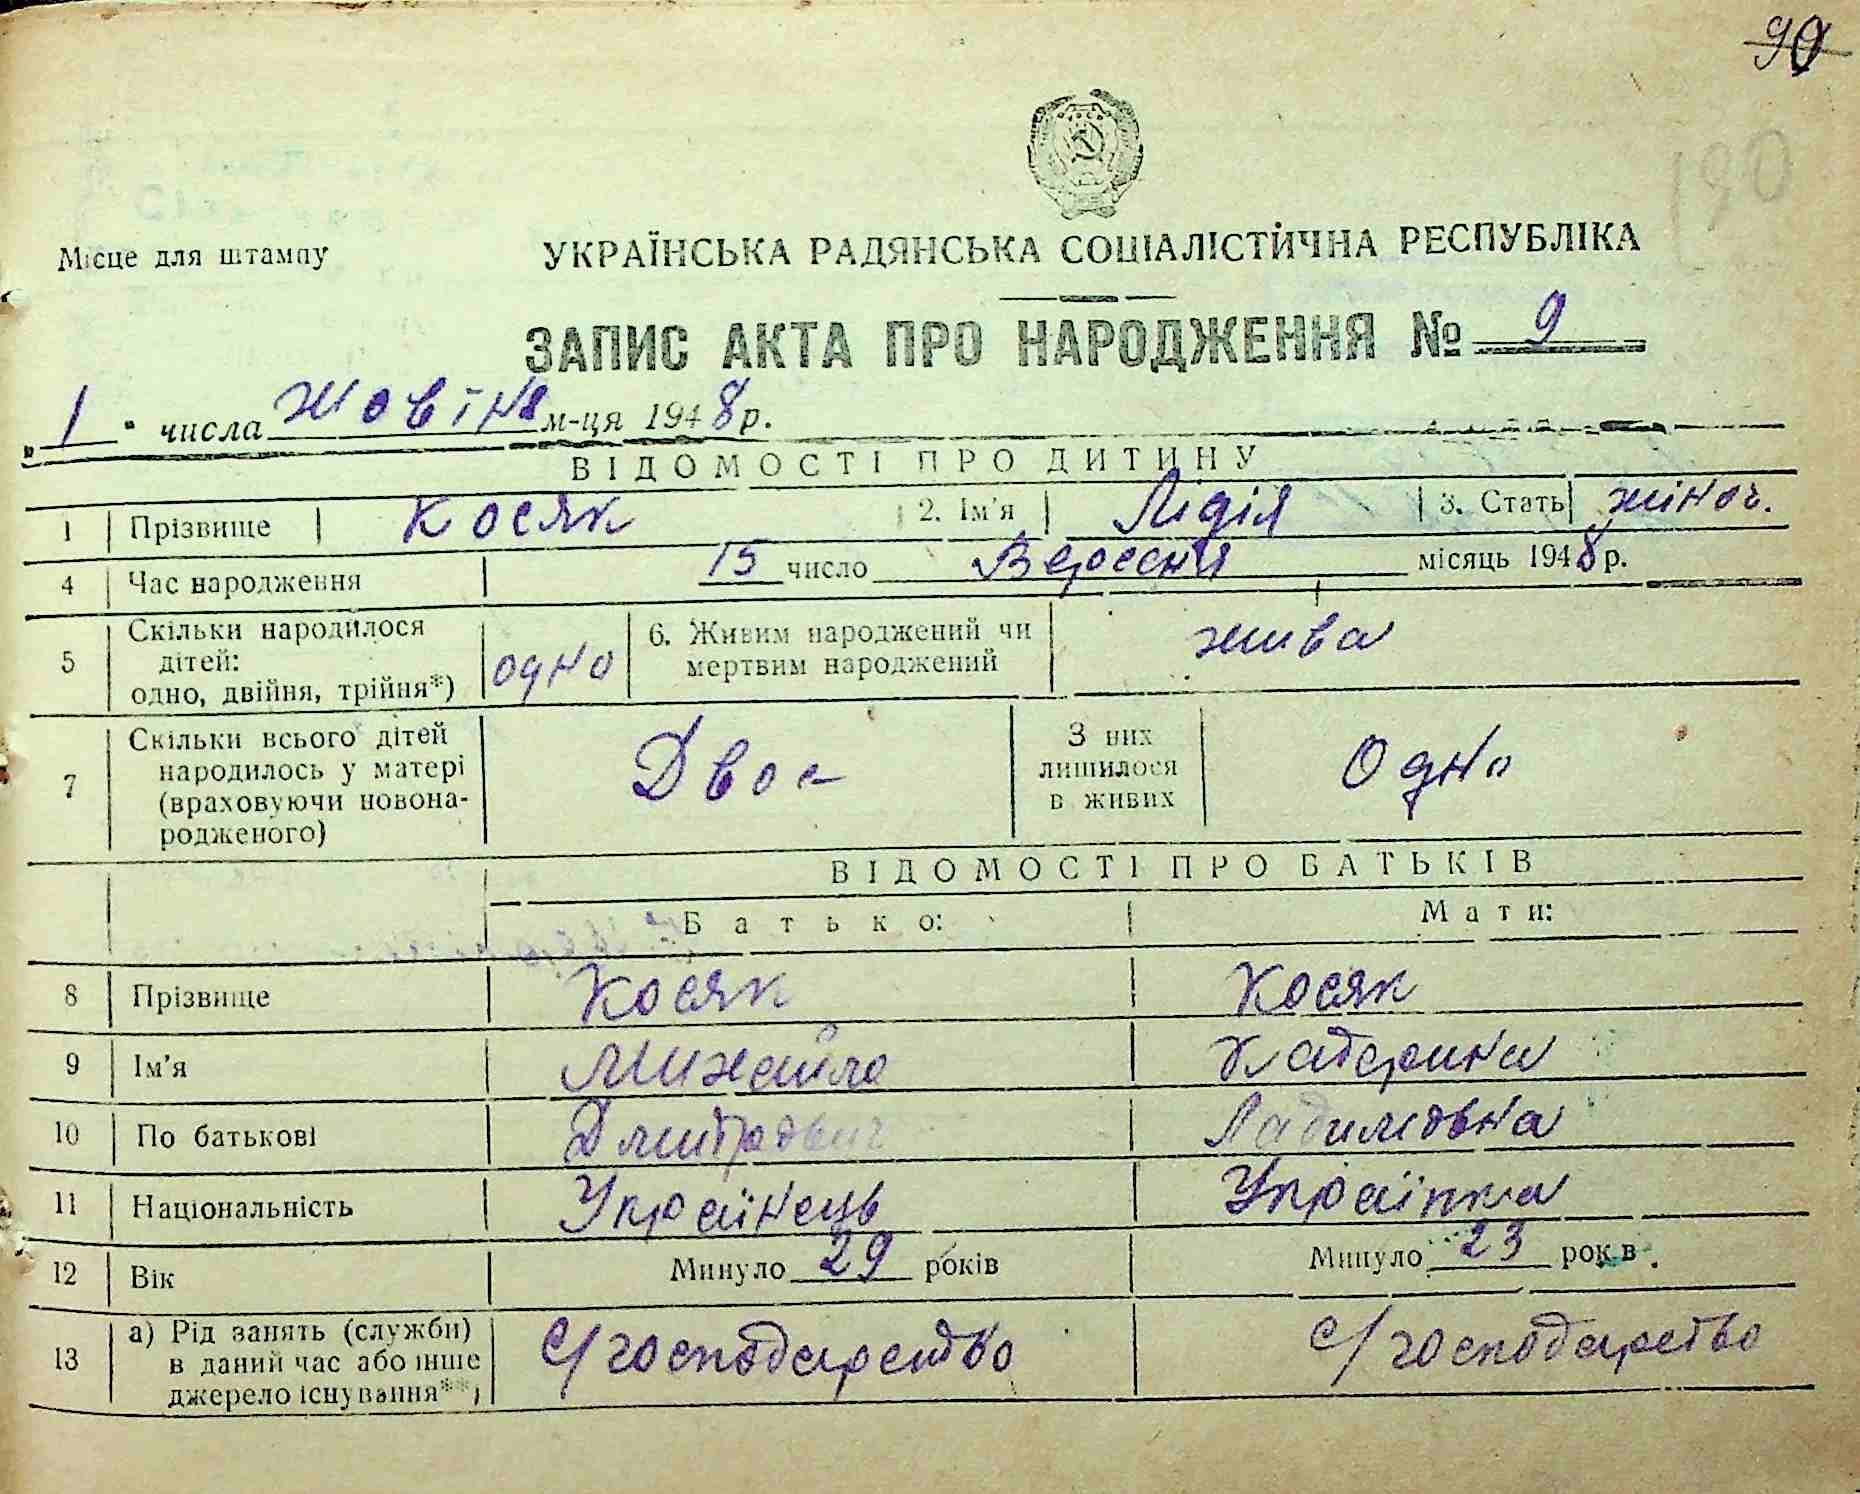 90
190
Місце для штампу
УКРАЇНСЬКА РАДЯНСЬКА СОЦІАЛІСТИЧНА РЕСПУБЛІКА
ЗАПИС АКТА ПРО НАРОДЖЕННЯ № 9
„1" числа жовтня м-ця 1948 р.
ВІДОМОСТІ ПРО ДИТИНУ
1 Прізвище Косяк 2. Ім'я Лідія 3. Стать жіноч.
4 Час народження 15 число Вересня місяць 1948 р.
5 Скільки народилося дітей: одно, двійня, трійня*) одно 6. Живим народжений чи мертвим народжений жива
7 Скільки всього дітей народилось у матері (враховуючи новонародженого) Двоє З них лишилося в живих Одно
ВІДОМОСТІ ПРО БАТЬКІВ
Батько: Мати:
8 Прізвище Косяк Косяк
9 Ім'я Михайло Катерина
10 По батькові Дмитрович
11 Національність Українець Українка
12 Вік Минуло 29 років Минуло 23 років
13 а) Рід занять (служби) в даний час або інше джерело існування**) с/господарство с/господарство